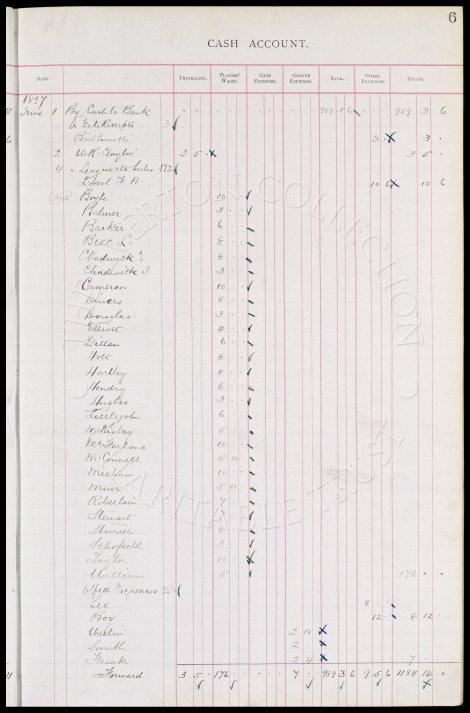 6
CASH ACCOUNT.
DATE. TRAVELLING. PLAYERS' WAGES. GATE EXPENSES. GROUND EXPENSES. BANK. OTHER PAYMENTS. TOTALS.
1897
June 1 By Cash to Bank 989 3 6 989 3 6
3
2 W.R. Clayton 3 5 3 5
4 " 172
L'pool F. A. 10 6 10 6
Boyle 10
Balmer 3
Barker 6
Bell L. 8
Chadwick E 8
Chadwick A 3
Cameron 10
Divers 8
Douglas 3
Elliott 4
Gillan 6
Holt 8
Hartley 8
Hendry 6
Hughes 3
Littlejohn 6
McKinlay 5
McFarlane 10
McConnell 5 10
Meehan 10
Muir 5 10
Robertson 7
Stewart 7
Storrier 8
Schofield 3
Taylor 10
William 5 176 " "
Office Expenses
Lee 8
Box 12 8 12
2 10
Smith 2
Frank 2 4 7
Forward 3 5 176 7 989 3 6 9 5 6 1184 14
THE EVERTON COLLECTION
CHARITABLE TRUST